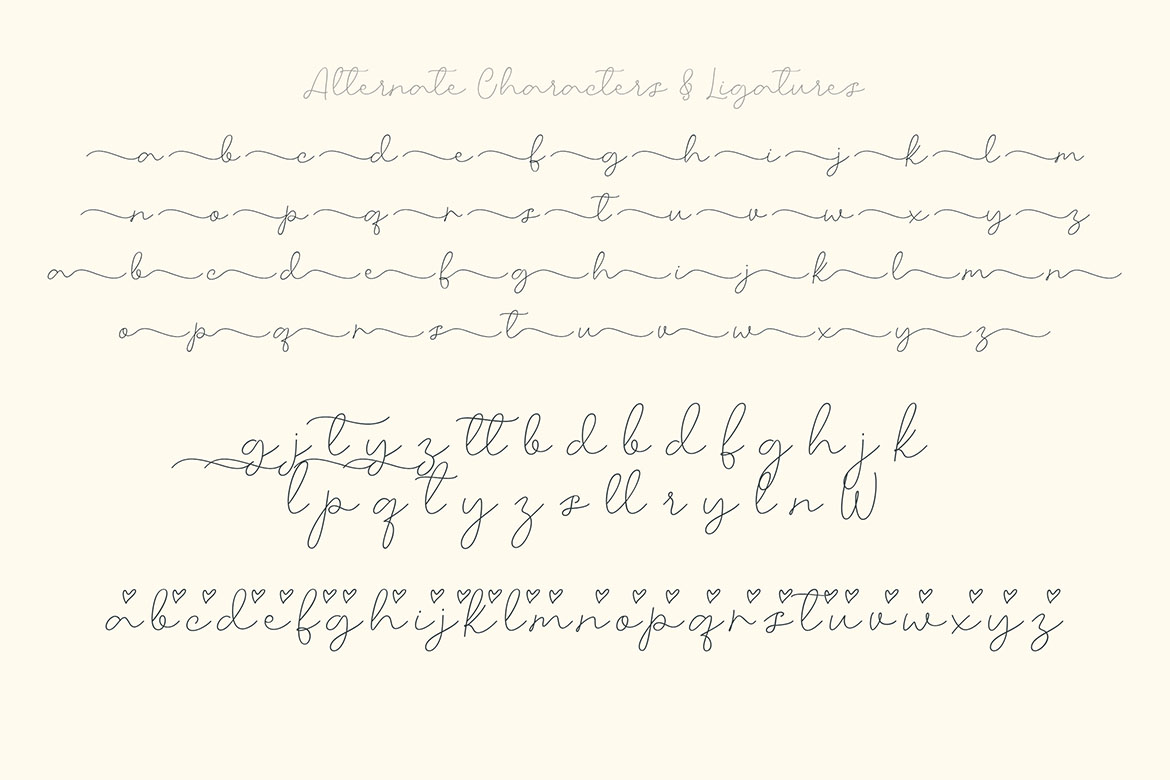 Alternate Characters & Ligatures
a b c d e f g h i j k l m
n o p q r s t u v w x y z
a b c d e f g h i j k l m n
o p q r s t u v w x y z
g j t y z tt b d b d f g h j k
l p q t y z s ll r y l n W
a b c d e f g h i j k l m n o p q r s t u v w x y z